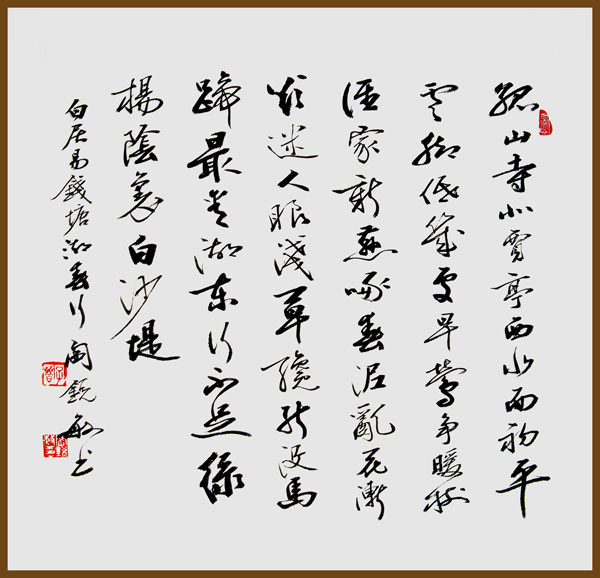 孤山寺北賈亭西水面初平
雲腳低幾處早鶯爭暖樹
誰家新燕啄春泥亂花漸
欲迷人眼淺草纔能沒馬
蹄最愛湖東行不足綠
楊蔭裏白沙堤
白居易錢塘湖春行 銳敏书